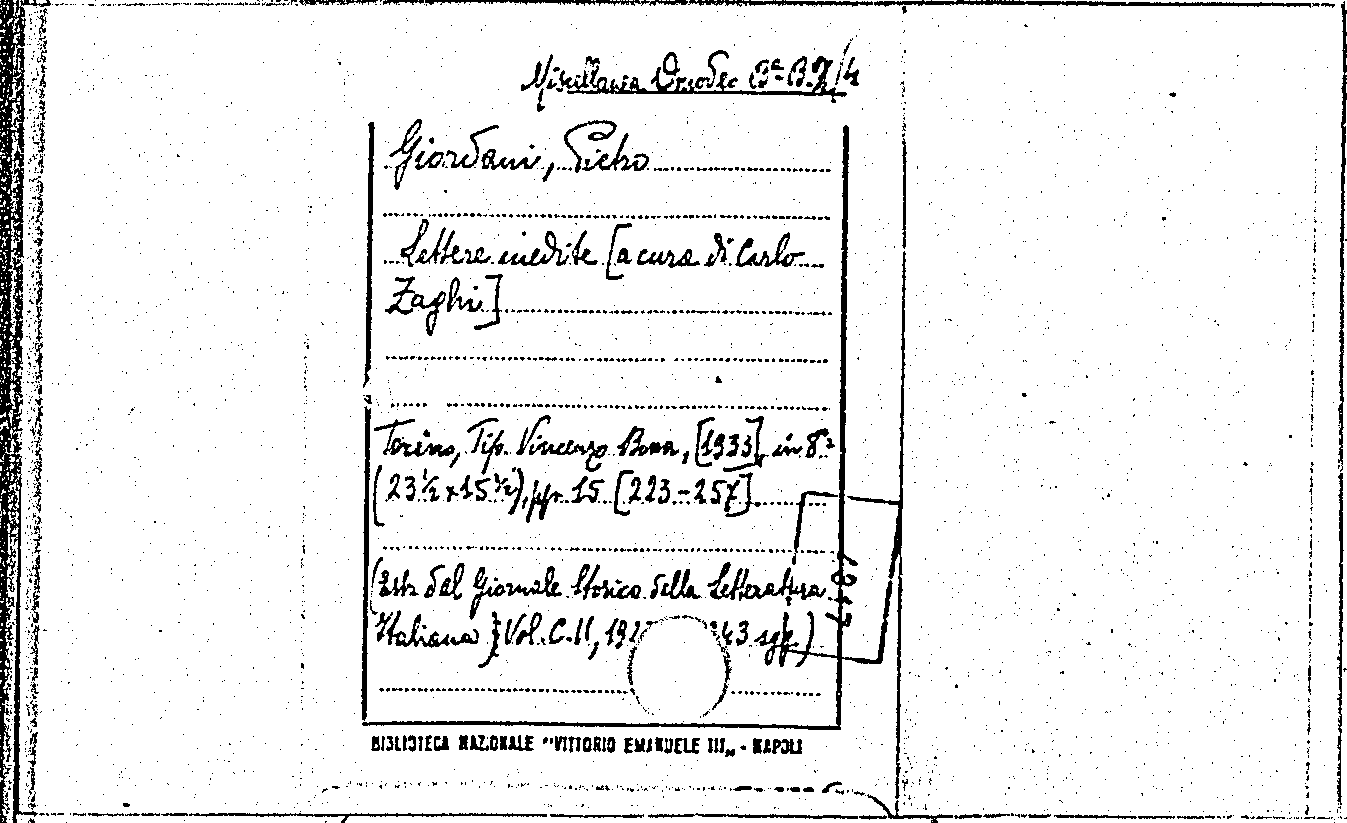 Miscellanea
Giordani, Pietro
Lettere inedite [a cura di Carlo
Zaghi]
Torino, Tip. Vincenzo Bona, [1933], in 8°
(23½x15½), pp. 15 [223-257].
(Estr. dal Giornale Storico della Letteratura
Italiana Vol. C.II, 243 sgg.)
BIBLIOTECA NAZIONALE "VITTORIO EMANUELE III„ - NAPOLI